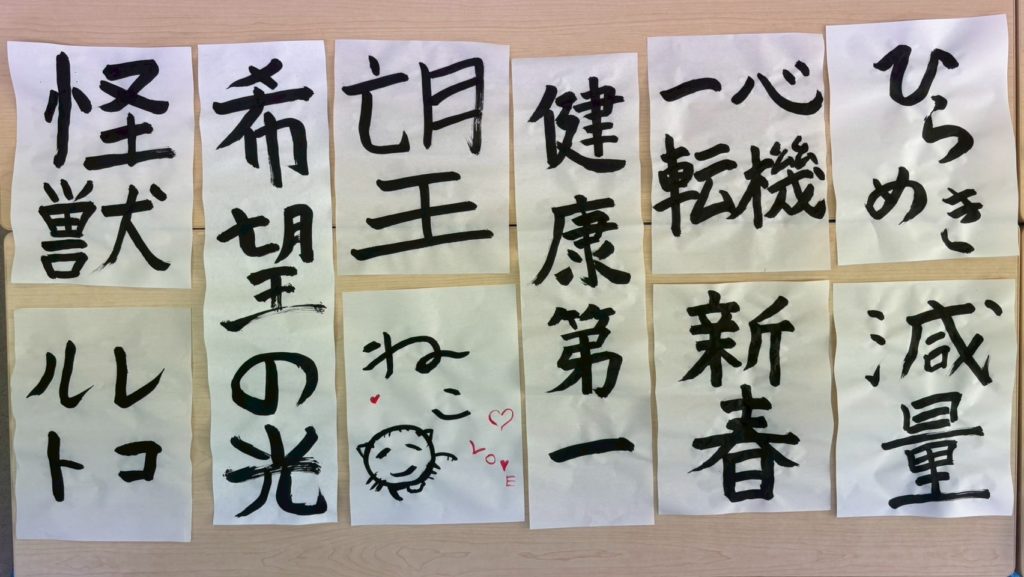 ひらめき
減量
心機
一転
新春
健康第一
望
ねこ
LOVE
希望の光
怪獣
レコ
ルト